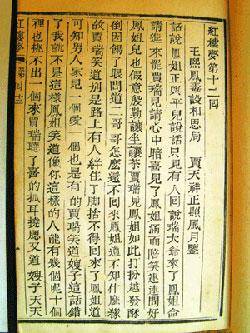 紅樓夢第十二回
王熙鳳毒設相思局 賈天祥正照風月鑒
話說鳳姐正與平兒說話只見有人回說瑞大爺來了鳳姐命
請進來賈瑞見請心中暗喜見了鳳姐滿面陪笑連連問好
鳳姐兒也假意殷勤讓坐讓茶賈瑞見鳳姐如此打扮越發酥
倒了因餳了眼問道二哥哥怎麽還不回來鳳姐道不知什麽緣
故賈瑞笑道別是路上有人絆住了脚捨不得回來了鳳姐道
可知男人家見一個愛一個也是有的賈瑞笑道嫂子這話錯
了我就不是這樣鳳姐笑道像你這樣的人能有幾個呢十個
裡也挑不出一個來賈瑞聽了喜的抓耳撓腮又道嫂子天天
紅樓夢